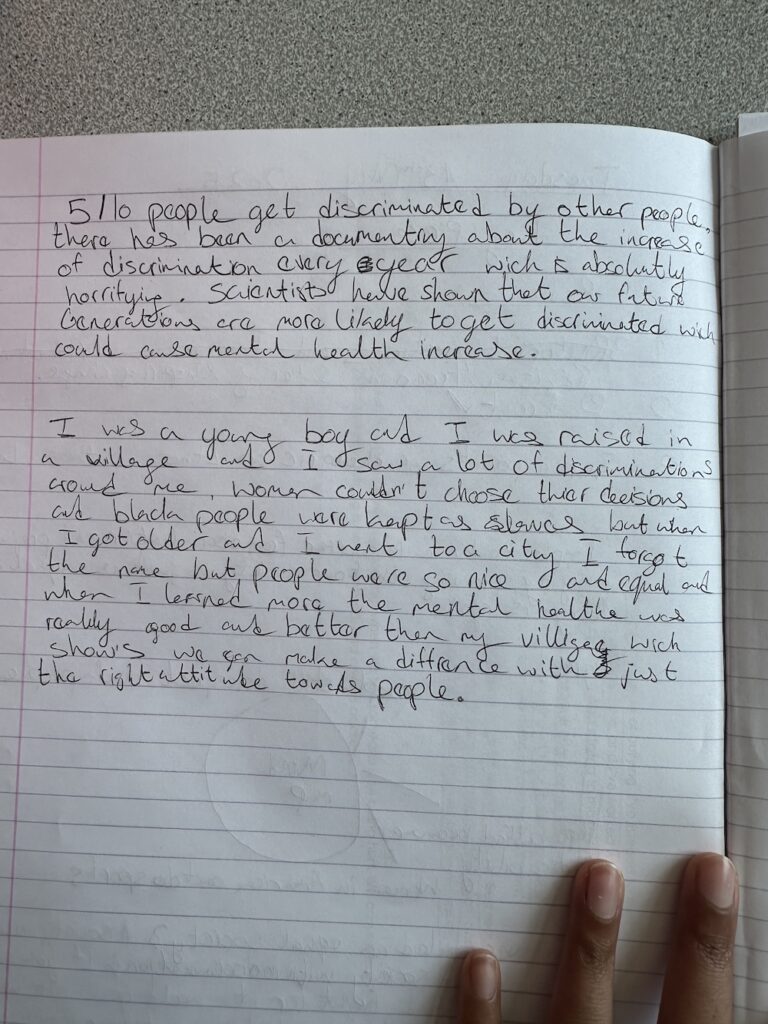 5/10 people get discriminated by other people,
there has been a documentry about the increase
of discrimination every year wich is absolutly
horrifying. Scientists have shown that our future
Generations are more likely to get discriminated wich
could cause mental health increase.
I was a young boy and I was raised in
a village and I saw a lot of discriminations
around me, women couldn't choose thier decisions
and black people were kept as slaves but when
I got older and I went to a city I forgot
the name but people were so nice and equal and
when I learned more the mental healthe was
really good and better then my village wich
show's we can make a diffrence with just
the right attitude towards people.